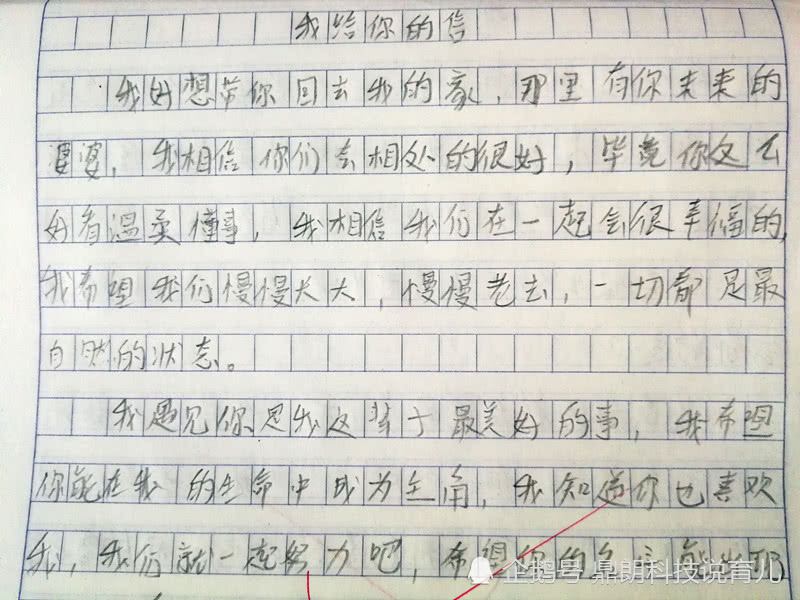 我给你的信
我好想带你回去我的家，那里有你未来的
婆婆，我相信你们会相处的很好，毕竟你这么
好看温柔懂事，我相信我们在一起会很幸福的，
我希望我们慢慢长大，慢慢老去，一切都是最
自然的状态。
我遇见你是我这辈子最美好的事，我希望
你能在我的生命中成为主角，我知道你也喜欢
我，我们就一起努力吧，希望你的
企鹅号 鼎朗科技说育儿